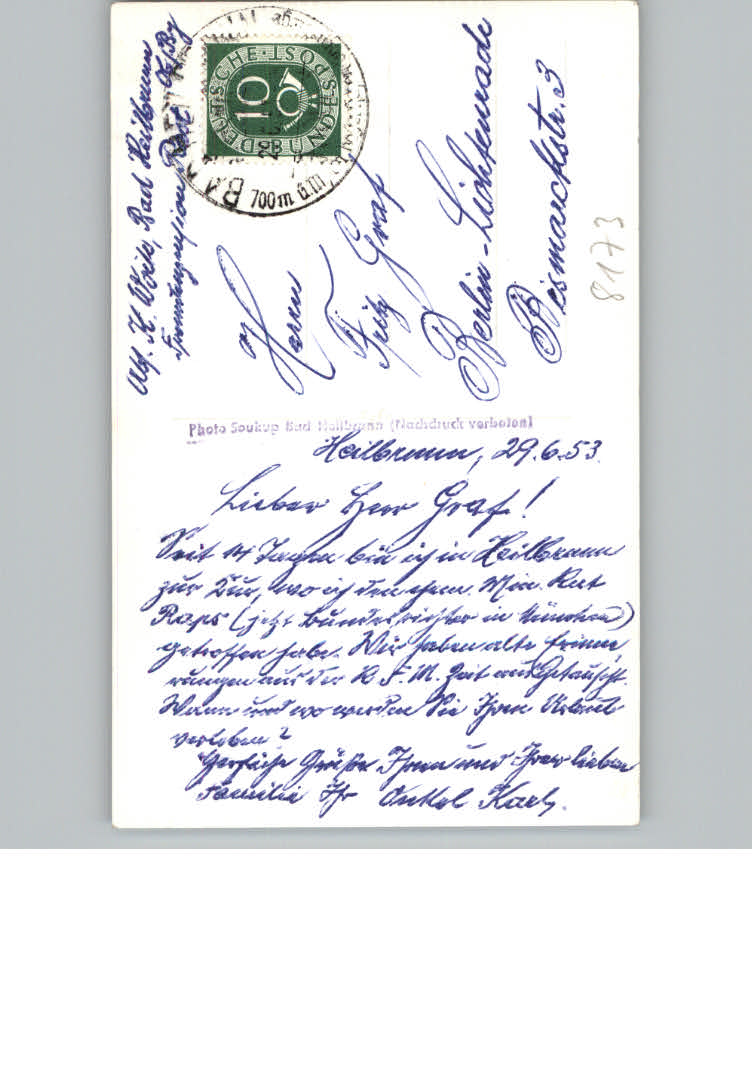 Abs. K. Bad Heilbrunn
Fremdenpension Obb.
DEUTSCHE BUNDESPOST
10
BAD
700 m ü.M.
Herrn
Fritz Graf
Berlin-Lichtenrade
Bismarckstr. 3
8173
Photo Soukup Bad Heilbrunn (Nachdruck verboten)
Heilbrunn, 29.6.53.
Lieber Herr Graf!
Seit 14 Tagen bin ich in Heilbrunn
zur Kur, wo ich den ehem. Min. Rat
Raps (jetzt Bundesrichter in München)
getroffen habe. Wir haben alte Erinne
rungen aus der R.F.M. Zeit ausgetauscht.
Wann und wo werden Sie Ihren Urlaub
verleben?
Herzliche Grüße Ihnen und Ihrer lieben
Familie Ihr Onkel Karl.